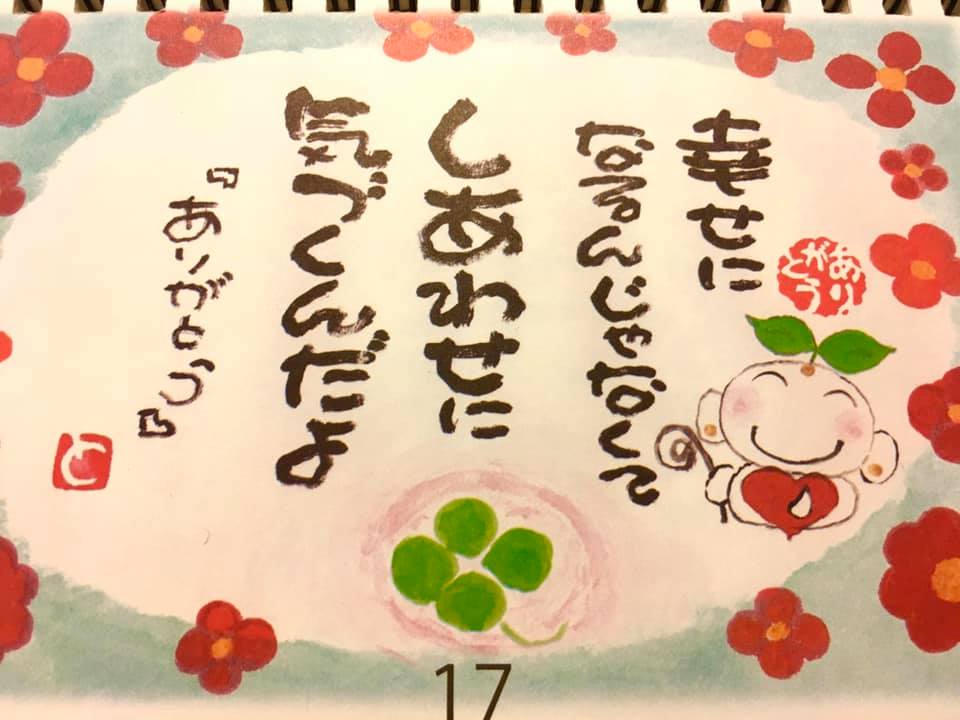 幸せに
なるんじゃなくて
しあわせに
気づくんだよ
『ありがとう』
ありがとう
と
17